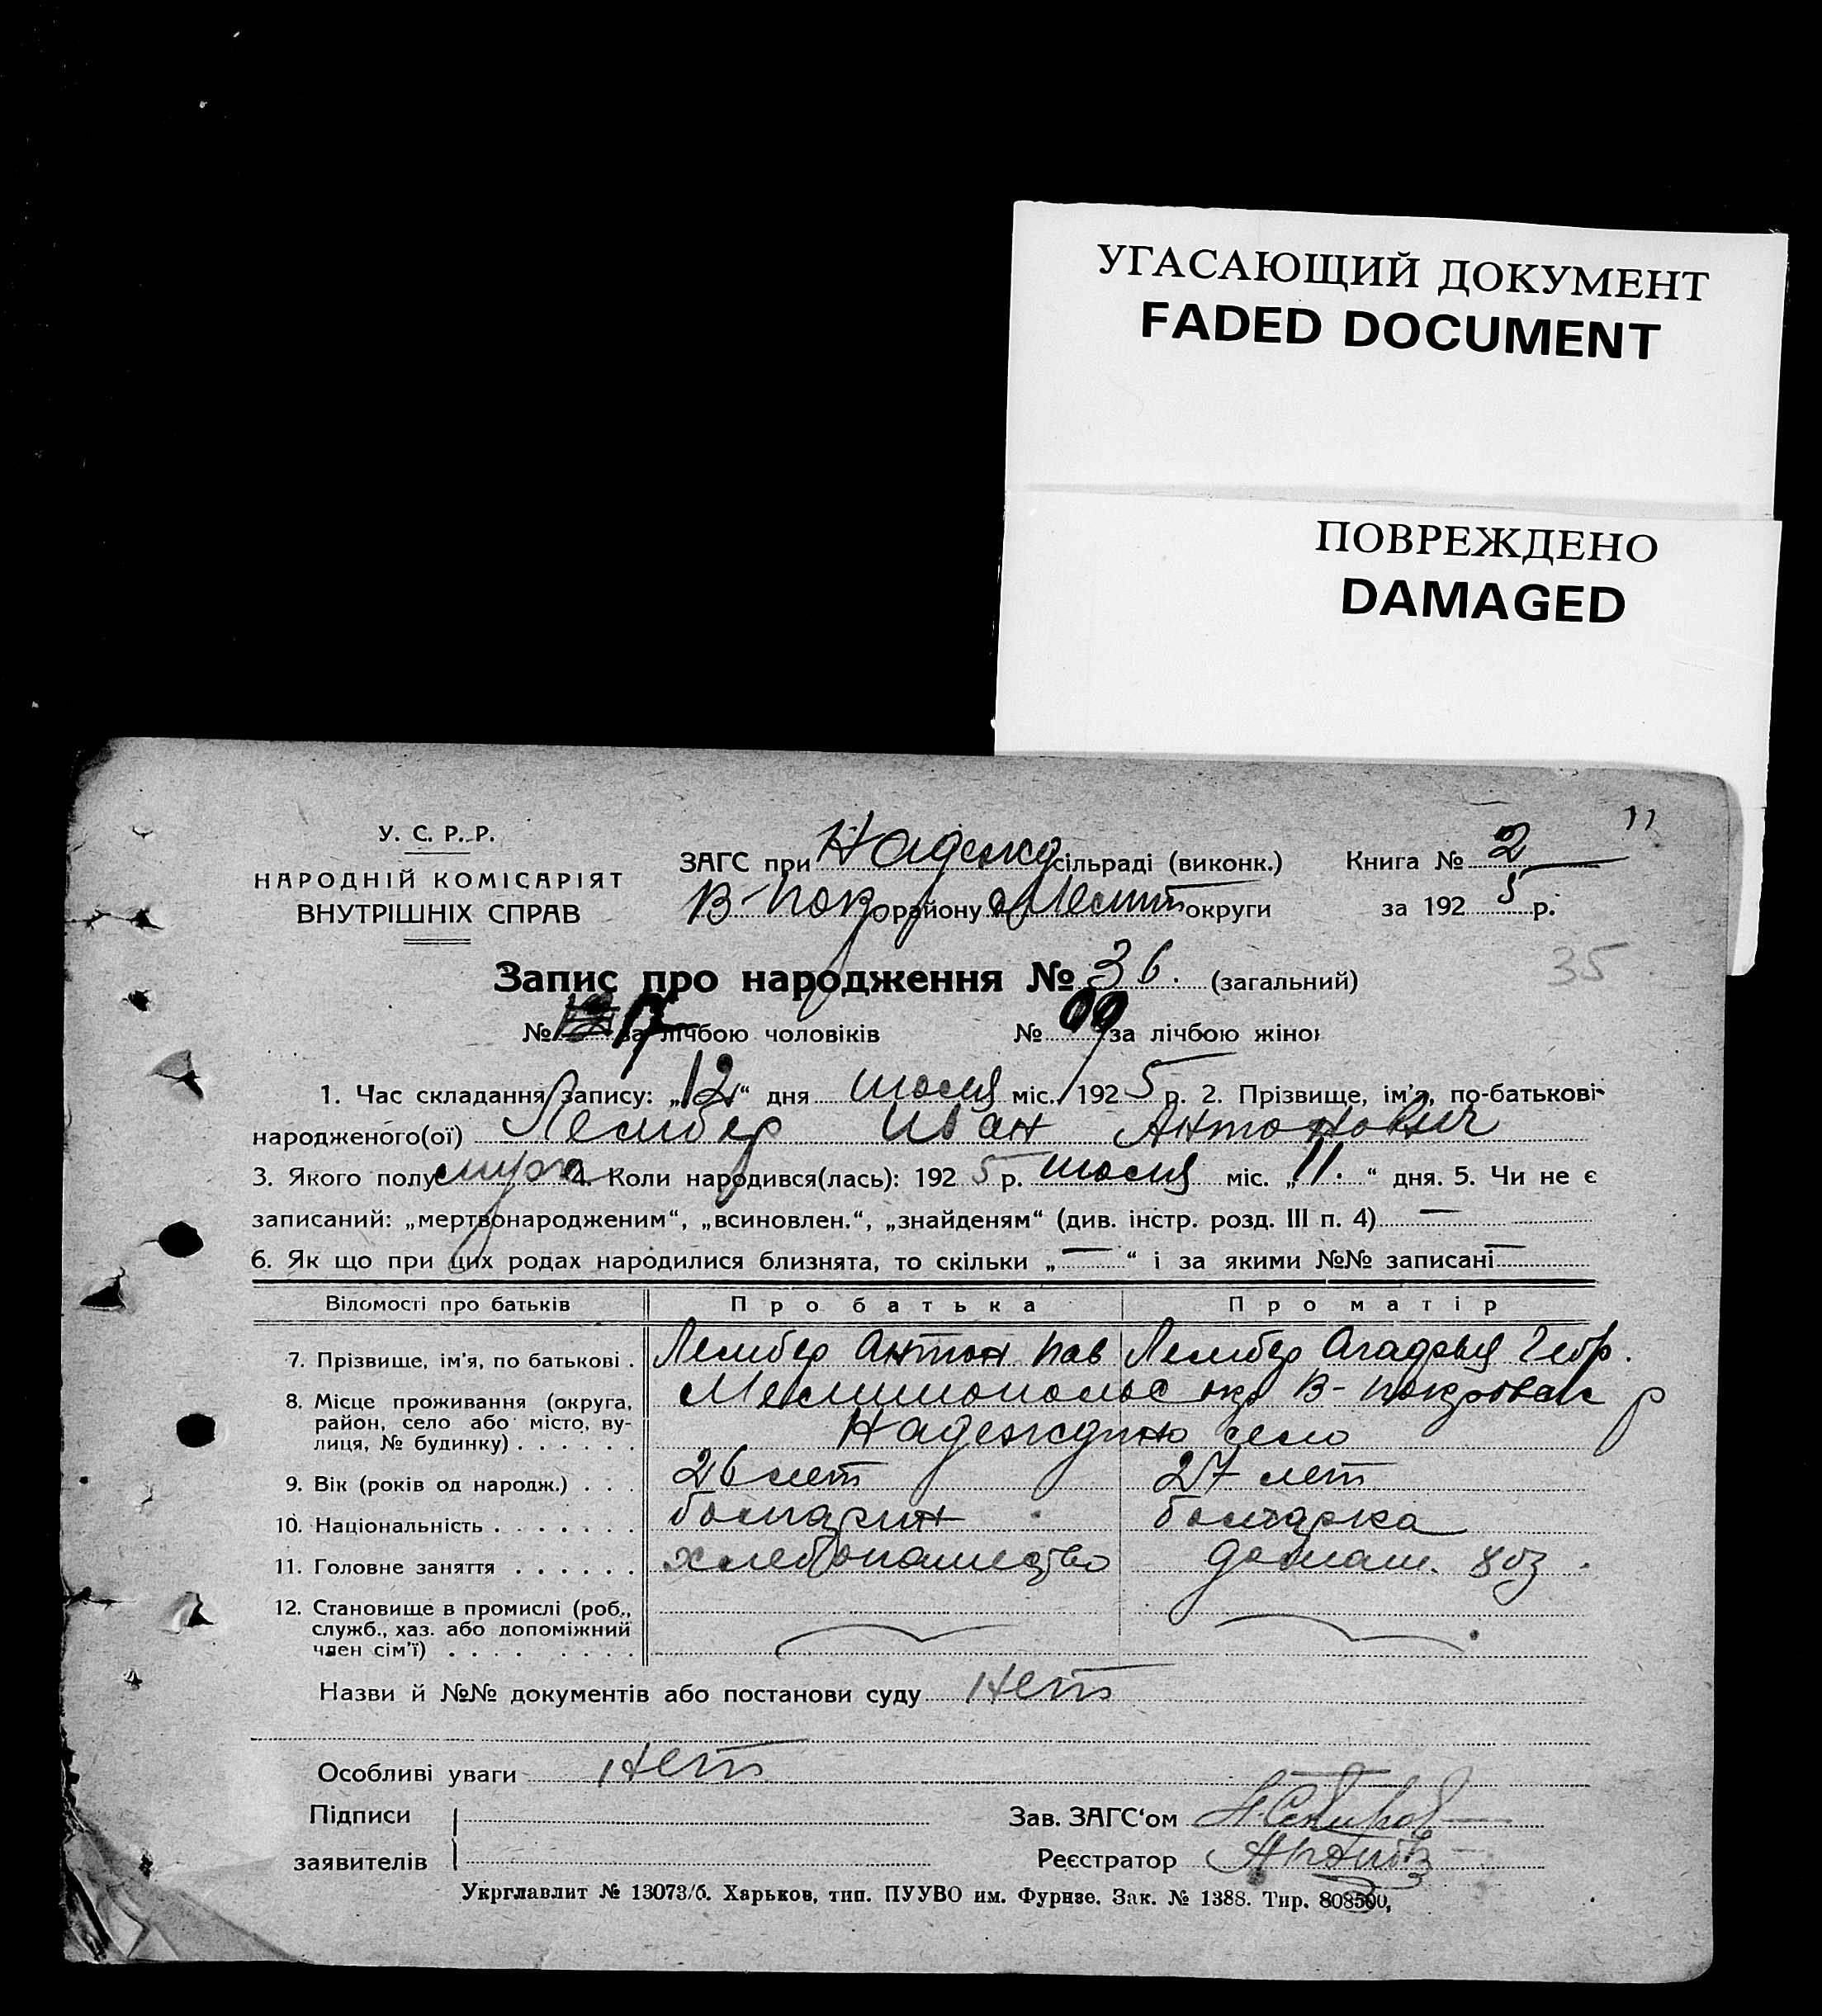 УГАСАЮЩИЙ ДОКУМЕНТ
FADED DOCUMENT
ПОВРЕЖДЕНО
DAMAGED
11
У. С. Р. Р.
НАРОДНІЙ КОМІСАРІЯТ
ВНУТРІШНІХ СПРАВ
ЗАГС при Надежд сільраді (виконк.) Книга № 2
В-Покр району Мелит округи за 1925 р.
35
Запис про народження № 36. (загальний)
№ 17 за лічбою чоловіків № за лічбою жінок
1. Час складання запису: „12“ дня июля міс. 1925 р. 2. Прізвище, ім'я, по-батькові
народженого(ої) Лембер Иван Антонович
3. Якого полу муж 4. Коли народився(лась): 1925 р. июля міс. „11.“ дня. 5. Чи не є
записаний: „мертвонародженим“, „всиновлен.“, „знайденям“ (див. інстр. розд. III п. 4) —
6. Як що при цих родах народилися близнята, то скільки „—“ і за якими №№ записані —
Відомості про батьків Про батька Про матір
7. Прізвище, ім'я, по батькові . Лембер Антон Пав Лембер Агафья
8. Місце проживання (округа, район, село або місто, вулиця, № будинку) . . . . . . Мелитопольс окр В-Покровск р
село
9. Вік (років од народж.) . . . 26 лет 27 лет
10. Національність . . . . . . . болгарин болгарка
11. Головне заняття . . . . . . хлебопашество домаш. хоз.
12. Становище в промислі (роб., служб., хаз. або допоміжний член сім'ї) . . . . . . . .
Назви й №№ документів або постанови суду нет
Особливі уваги нет
Підписи Зав. ЗАГС'ом
заявителів Реєстратор
Укрглавлит № 13073/б. Харьков, тип. ПУУВО им. Фурнзе. Зак. № 1388. Тир. 808500,